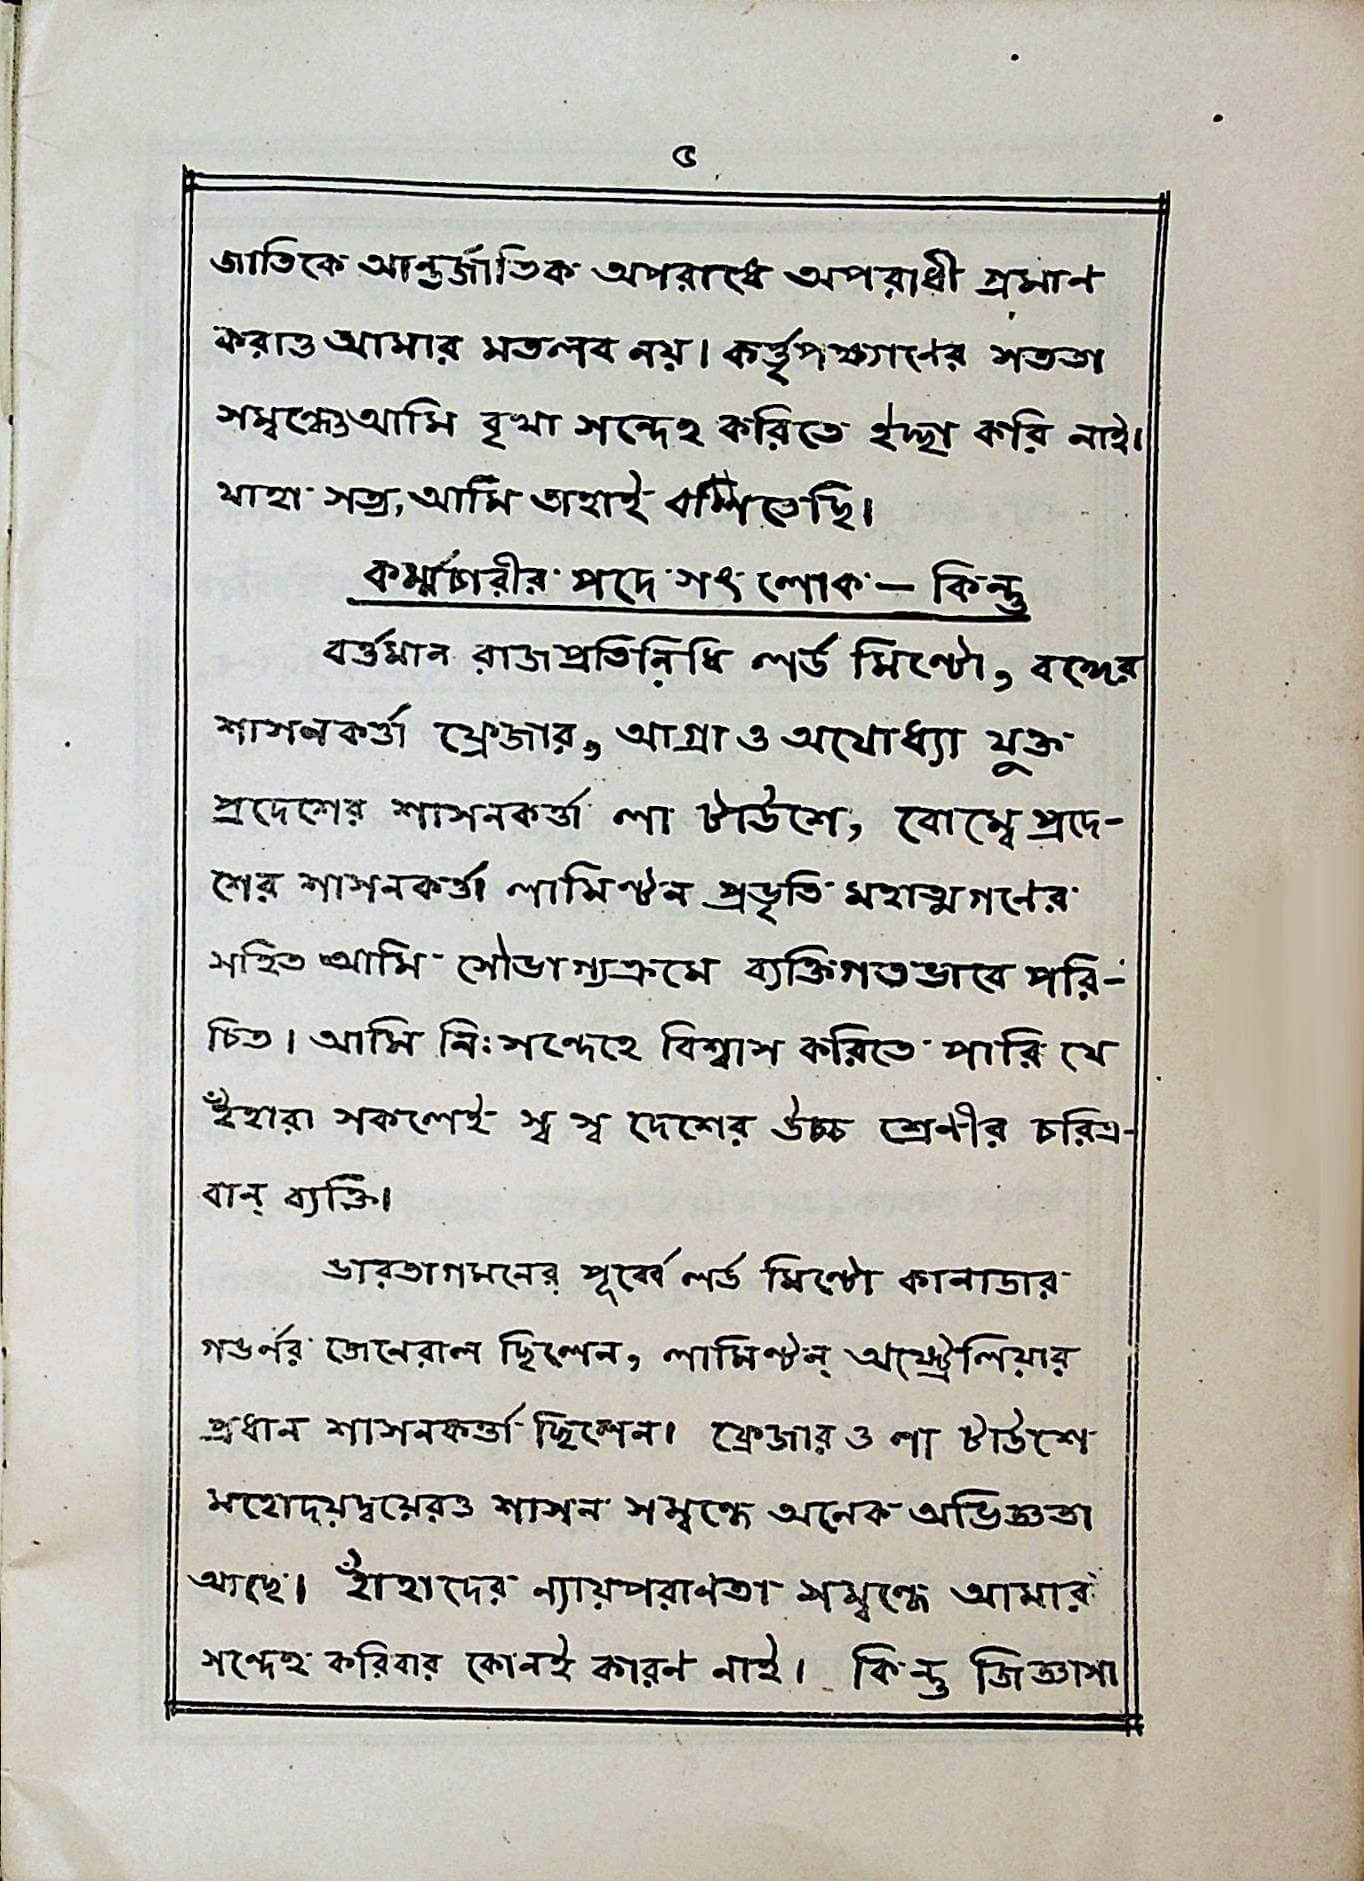 ৫
জাতিকে আন্তর্জাতিক অপরাধে অপরাধী প্রমাণ
করাও আমার মতলব নয়। কর্ত্তৃপক্ষগণের সততা
সম্বন্ধেও আমি বৃথা সন্দেহ করিতে ইচ্ছা করি নাই।
যাহা সত্য, আমি তাহাই বলিতেছি।
কর্ম্মচারীর পদে সৎ লোক – কিন্তু
বর্ত্তমান রাজপ্রতিনিধি লর্ড মিন্টো, বঙ্গের
শাসনকর্ত্তা ফ্রেজার, আগ্রা ও অযোধ্যা যুক্ত
প্রদেশের শাসনকর্ত্তা লা টাউশে, বোম্বে প্রদে-
শের শাসনকর্ত্তা লামিন্টন প্রভৃতি মহাত্মগণের
সহিত আমি সৌভাগ্যক্রমে ব্যক্তিগতভাবে পরি-
চিত। আমি নিঃসন্দেহে বিশ্বাস করিতে পারি যে
ইঁহারা সকলেই স্ব স্ব দেশের উচ্চ শ্রেণীর চরিত্র-
বান্ ব্যক্তি।
ভারতাগমনের পূর্ব্বে লর্ড মিন্টো কানাডার
গভর্নর জেনেরাল ছিলেন, লামিন্টন্ অষ্ট্রেলিয়ার
প্রধান শাসনকর্ত্তা ছিলেন। ফ্রেজার ও লা টাউশে
মহোদয়দ্বয়েরও শাসন সম্বন্ধে অনেক অভিজ্ঞতা
আছে। ইঁহাদের ন্যায়পরাণতা সম্বন্ধে আমার
সন্দেহ করিবার কোনই কারণ নাই। কিন্তু জিজ্ঞাসা